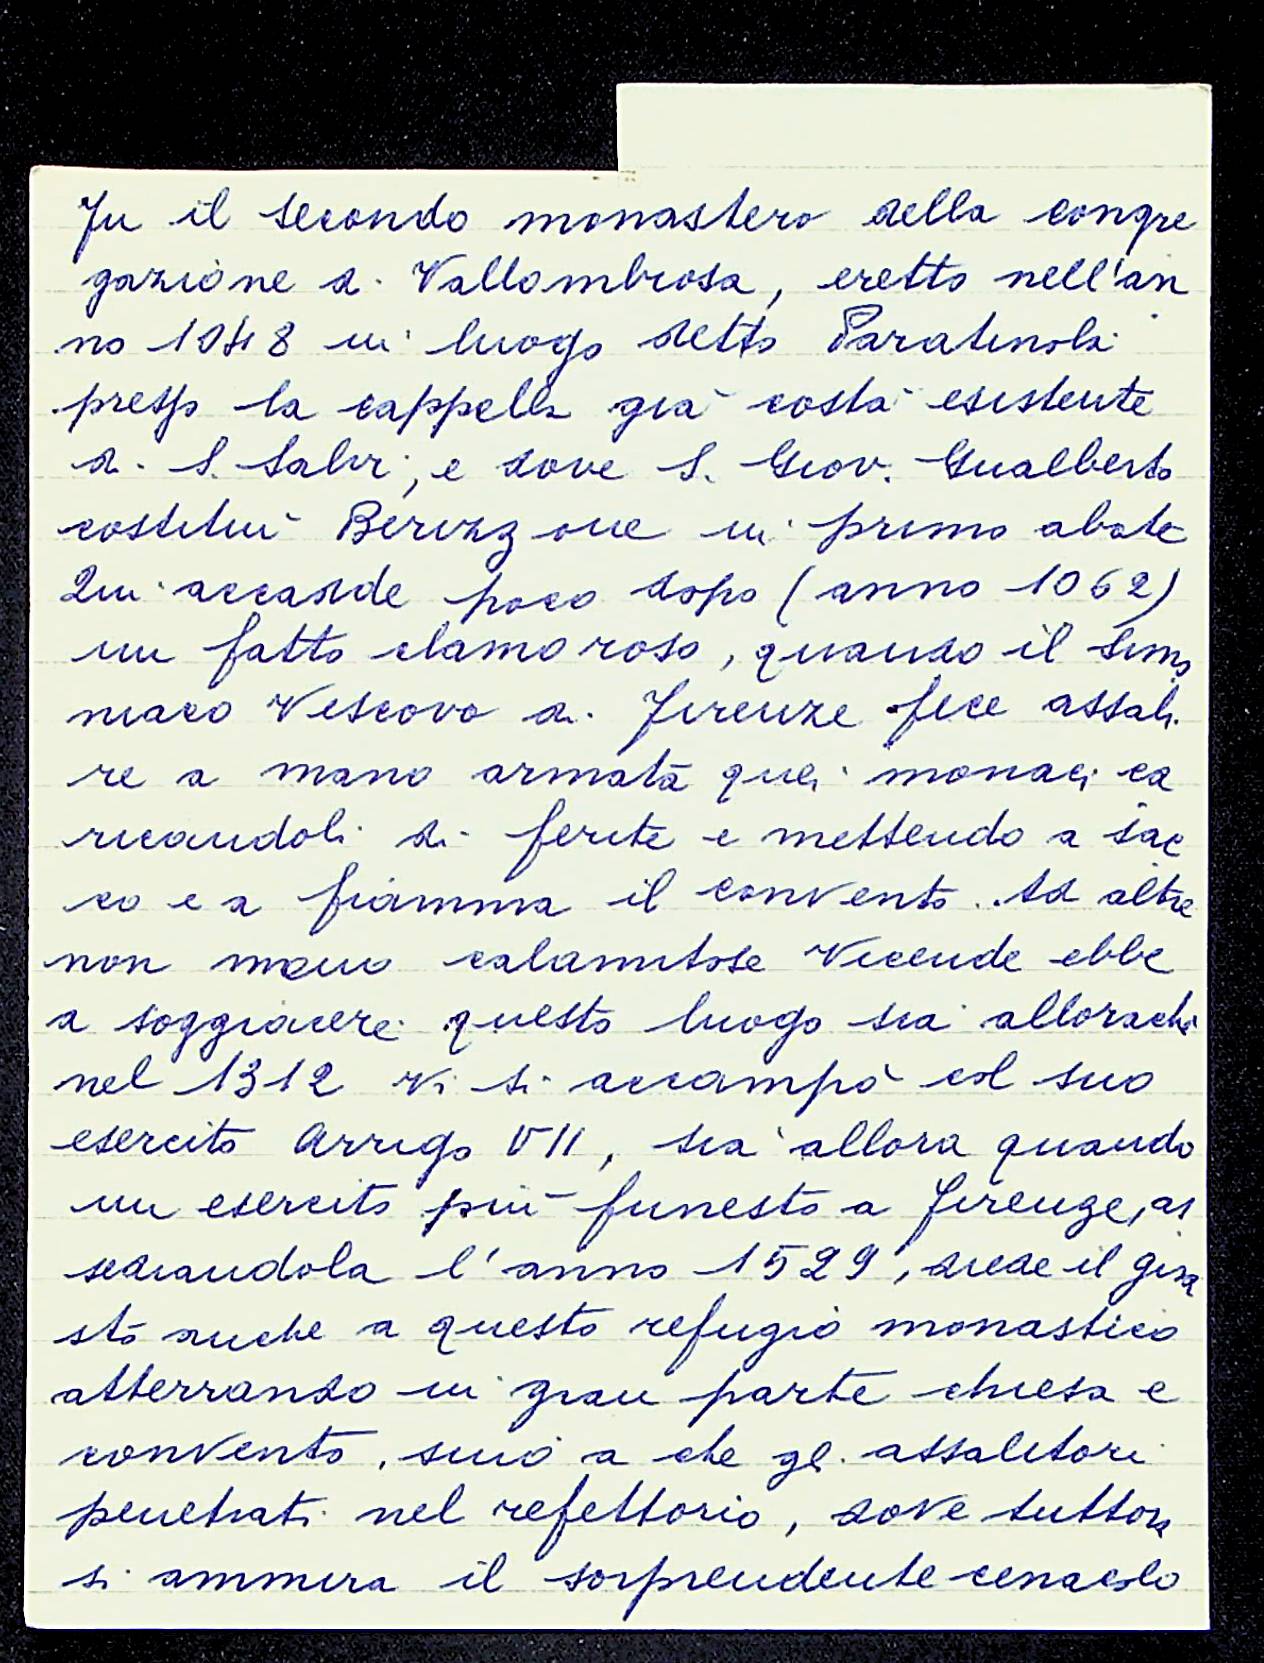 Fu il secondo monastero della congre
gazione di Vallombrosa, eretto nell'an
no 1048 in luogo detto Paratinola
presso la cappella già costà esistente
di S. Salvi, e dove S. Giov. Gualberto
costituì Berizzone in primo abate
Qui accadde poco dopo (anno 1062)
un fatto clamoroso, quando il simo
niaco Vescovo di Firenze fece assali
re a mano armata quei monaci ca
ricandoli di ferite e mettendo a sac
co e a fiamma il convento. Ad altre
non meno calamitose vicende ebbe
a soggiacere questo luogo sia allorachè
nel 1312 vi si accampò col suo
esercito Arrigo VII, sia allora quando
un esercito più funesto a Firenze, as
sediandola l'anno 1529, diede il gua
sto anche a questo refugio monastico
atterrando in gran parte chiesa e
convento, sino a che gli assalitori
penetrati nel refettorio, dove tuttora
si ammira il sorprendente cenacolo